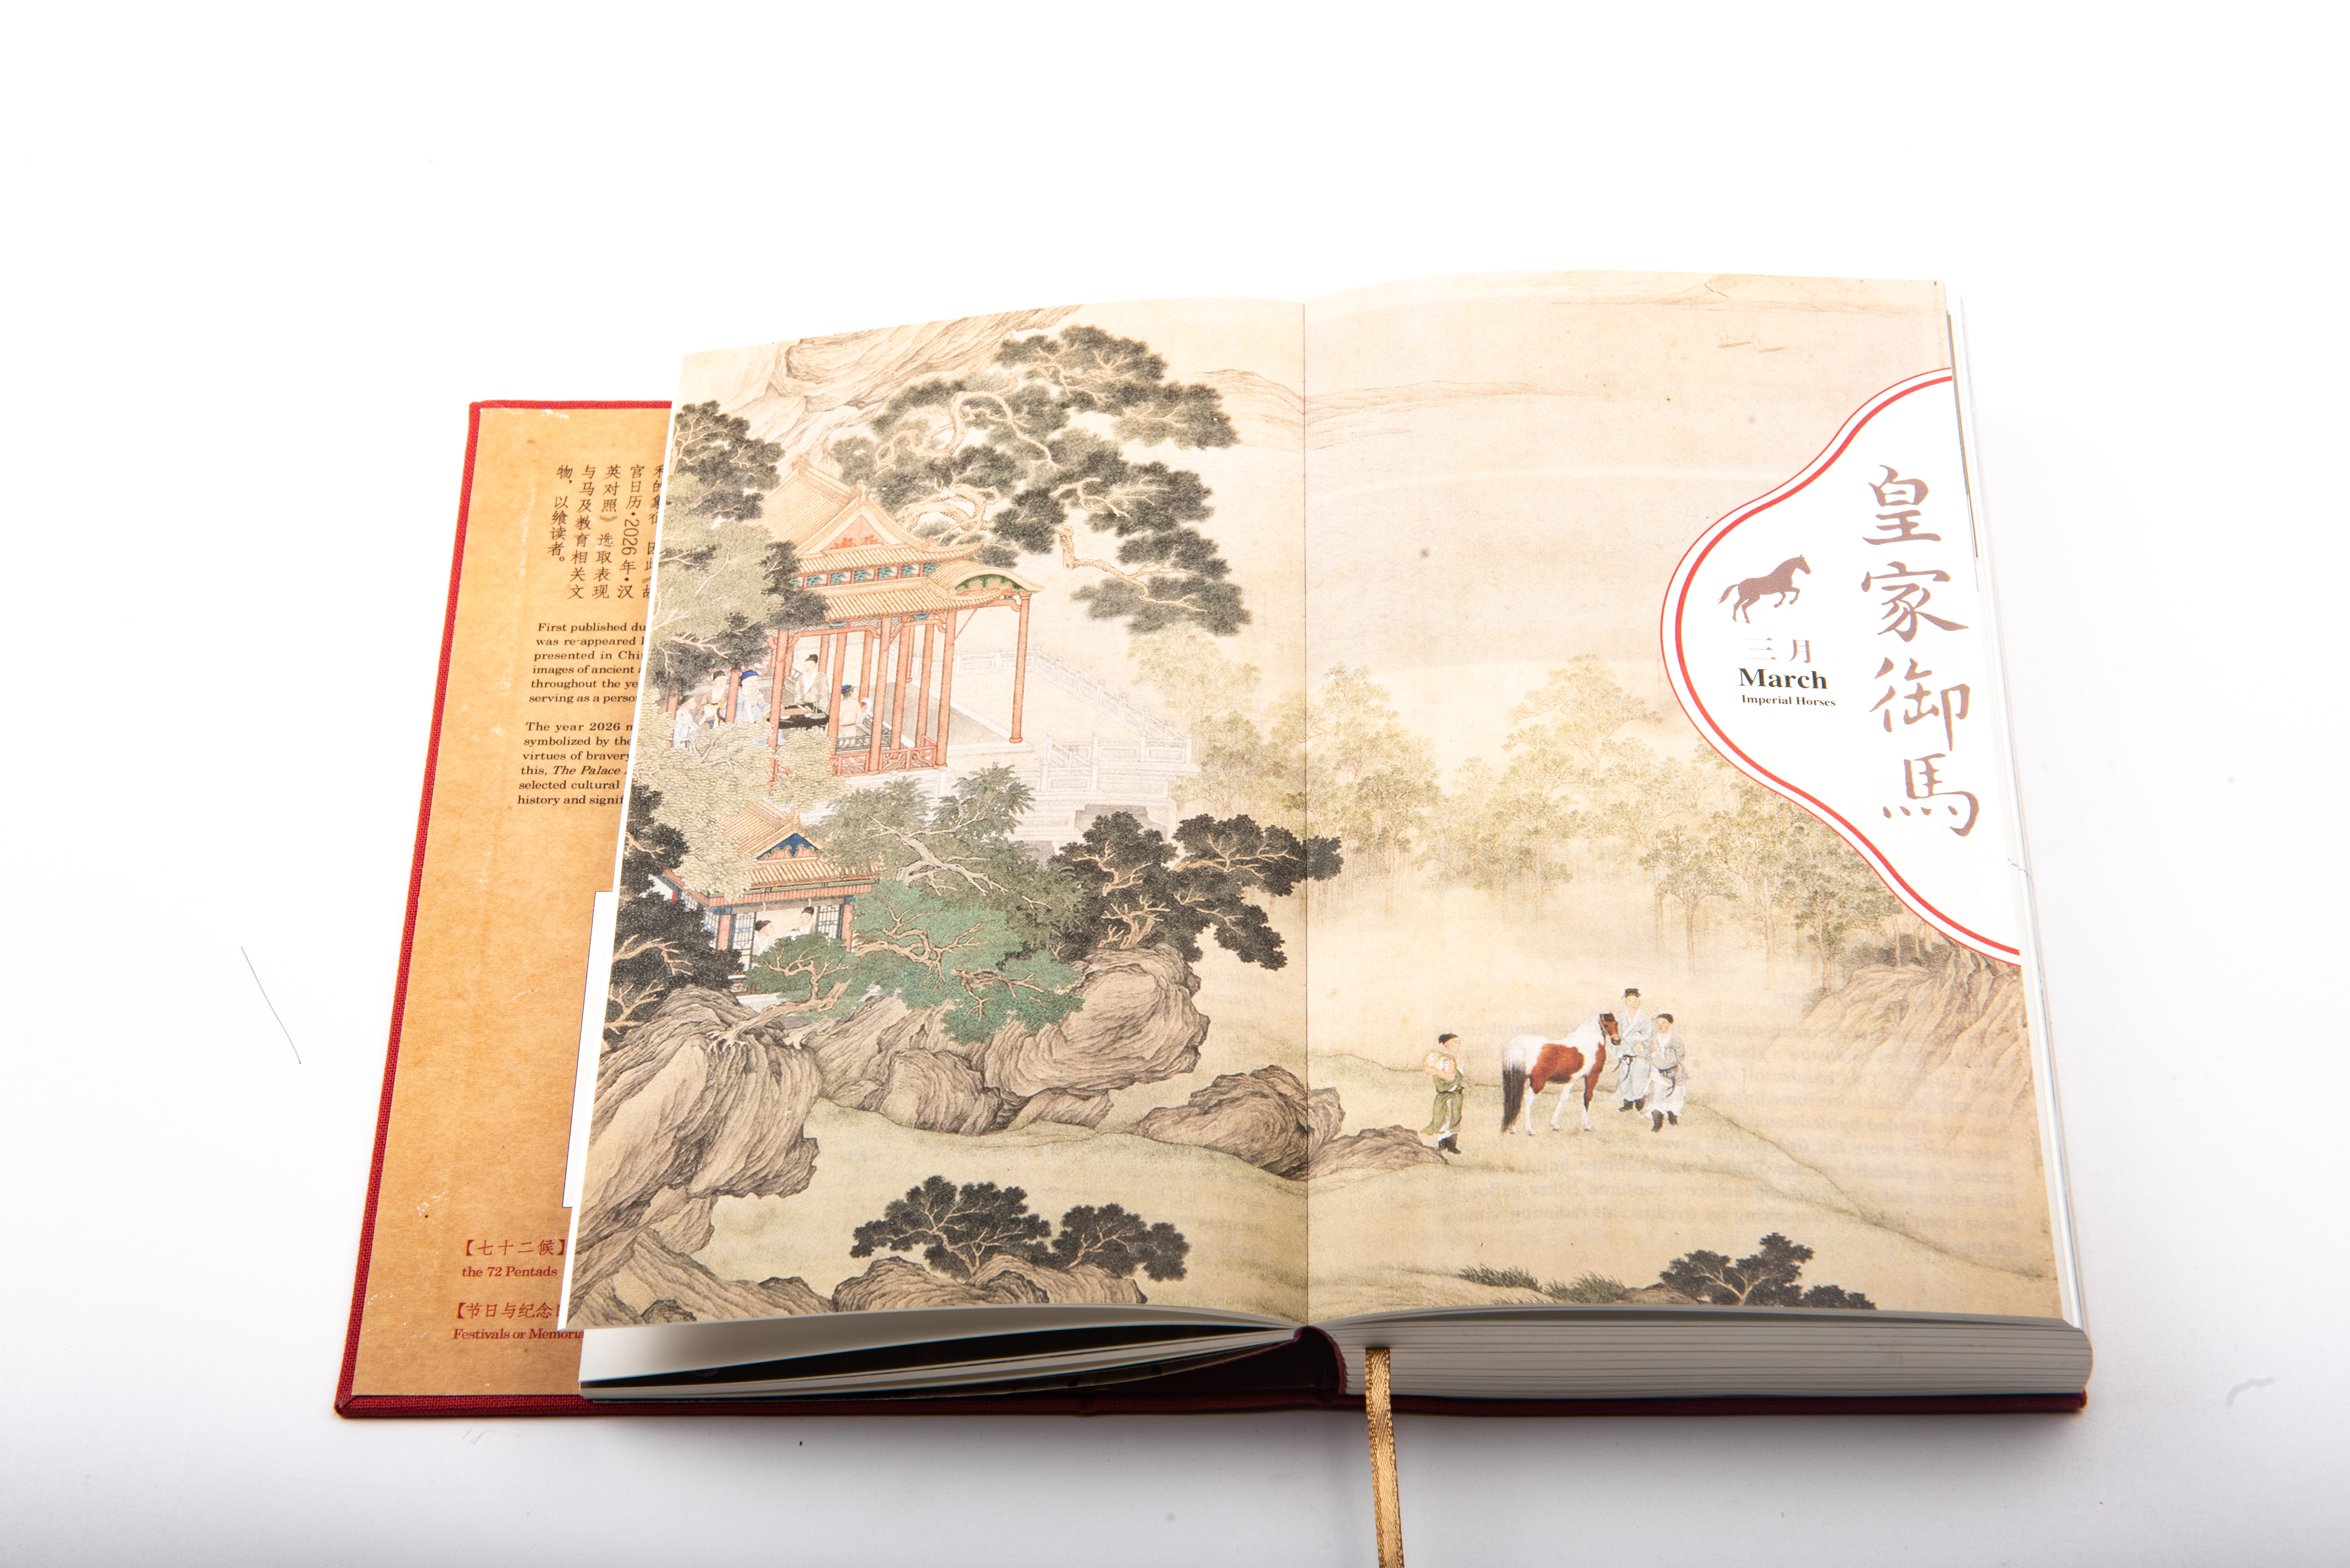 宫日历·2026年·汉
英对照》选取表现
与马及教育相关文
物，以飨读者。
First published du
was re-appeared
presented in Chi
images of ancient
throughout the ye
serving as a perso
The year 2026
symbolized by the
virtues of bravery
this, The Palace
selected cultural
history and signif
【七十二候】
the 72 Pentads
【节日与纪念日
Festivals or Memoria
皇家御馬
三月
March
Imperial Horses